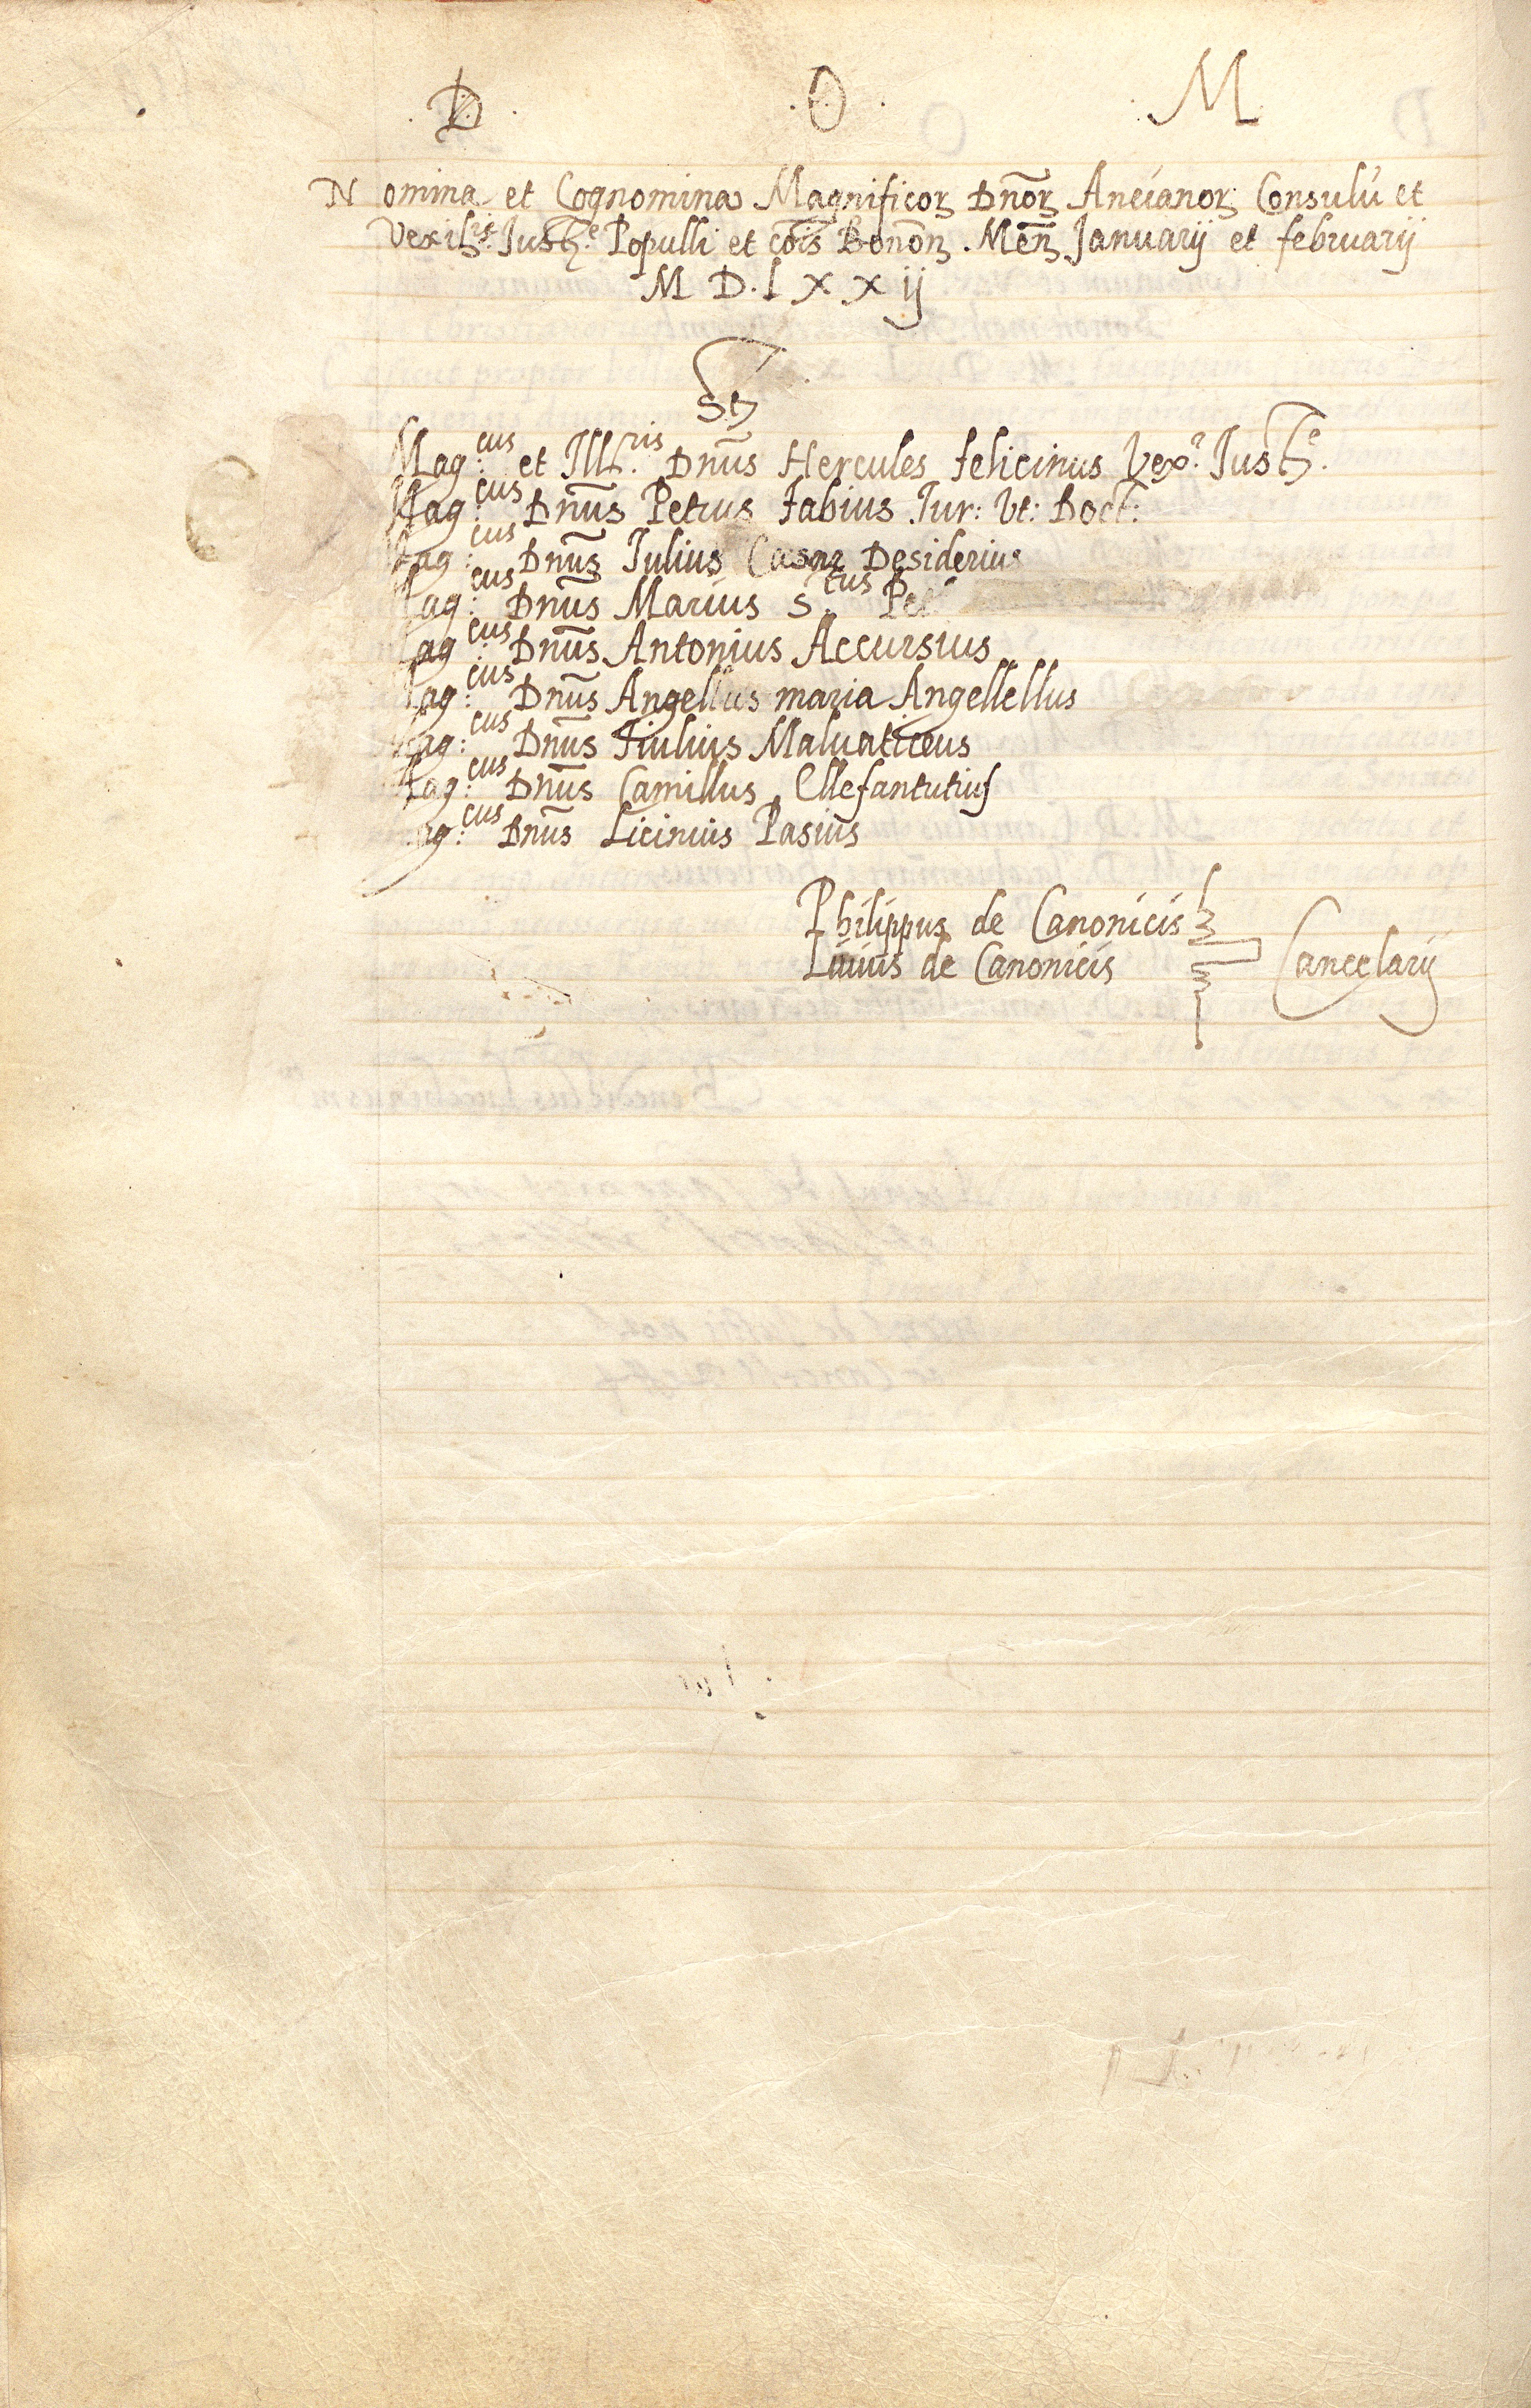 D. O. M
Nomina et Cognomina Magnificoꝝ Dnōꝝ Ancianoꝝ Consulū et
Vexilris Iuste Populli et cōis Bonōn. Mēn Januarij et februarij
M D. L X X ij
St
Mag:cus et Illris Dnūs Hercules felicinus Vexr Iuste.
Mag:cus Dnūs Petrus Fabius Iur: Vt: Doct:
Mag:cus Dnūs Iulius Cæsar Desiderius
Mag:cus Dnūs Marius S.tus
Mag:cus Dnūs Antonius Accursius
Mag:cus Dnūs Angellus maria Angellellus
Mag:cus Dnūs Fiulius Maluaticeus
Mag:cus Dnūs Camillus Ellefantutius
Mag:cus Dnūs Licinius Pasius
Philippus de Canonicis
Liuius de Canonicis
Cancelarij